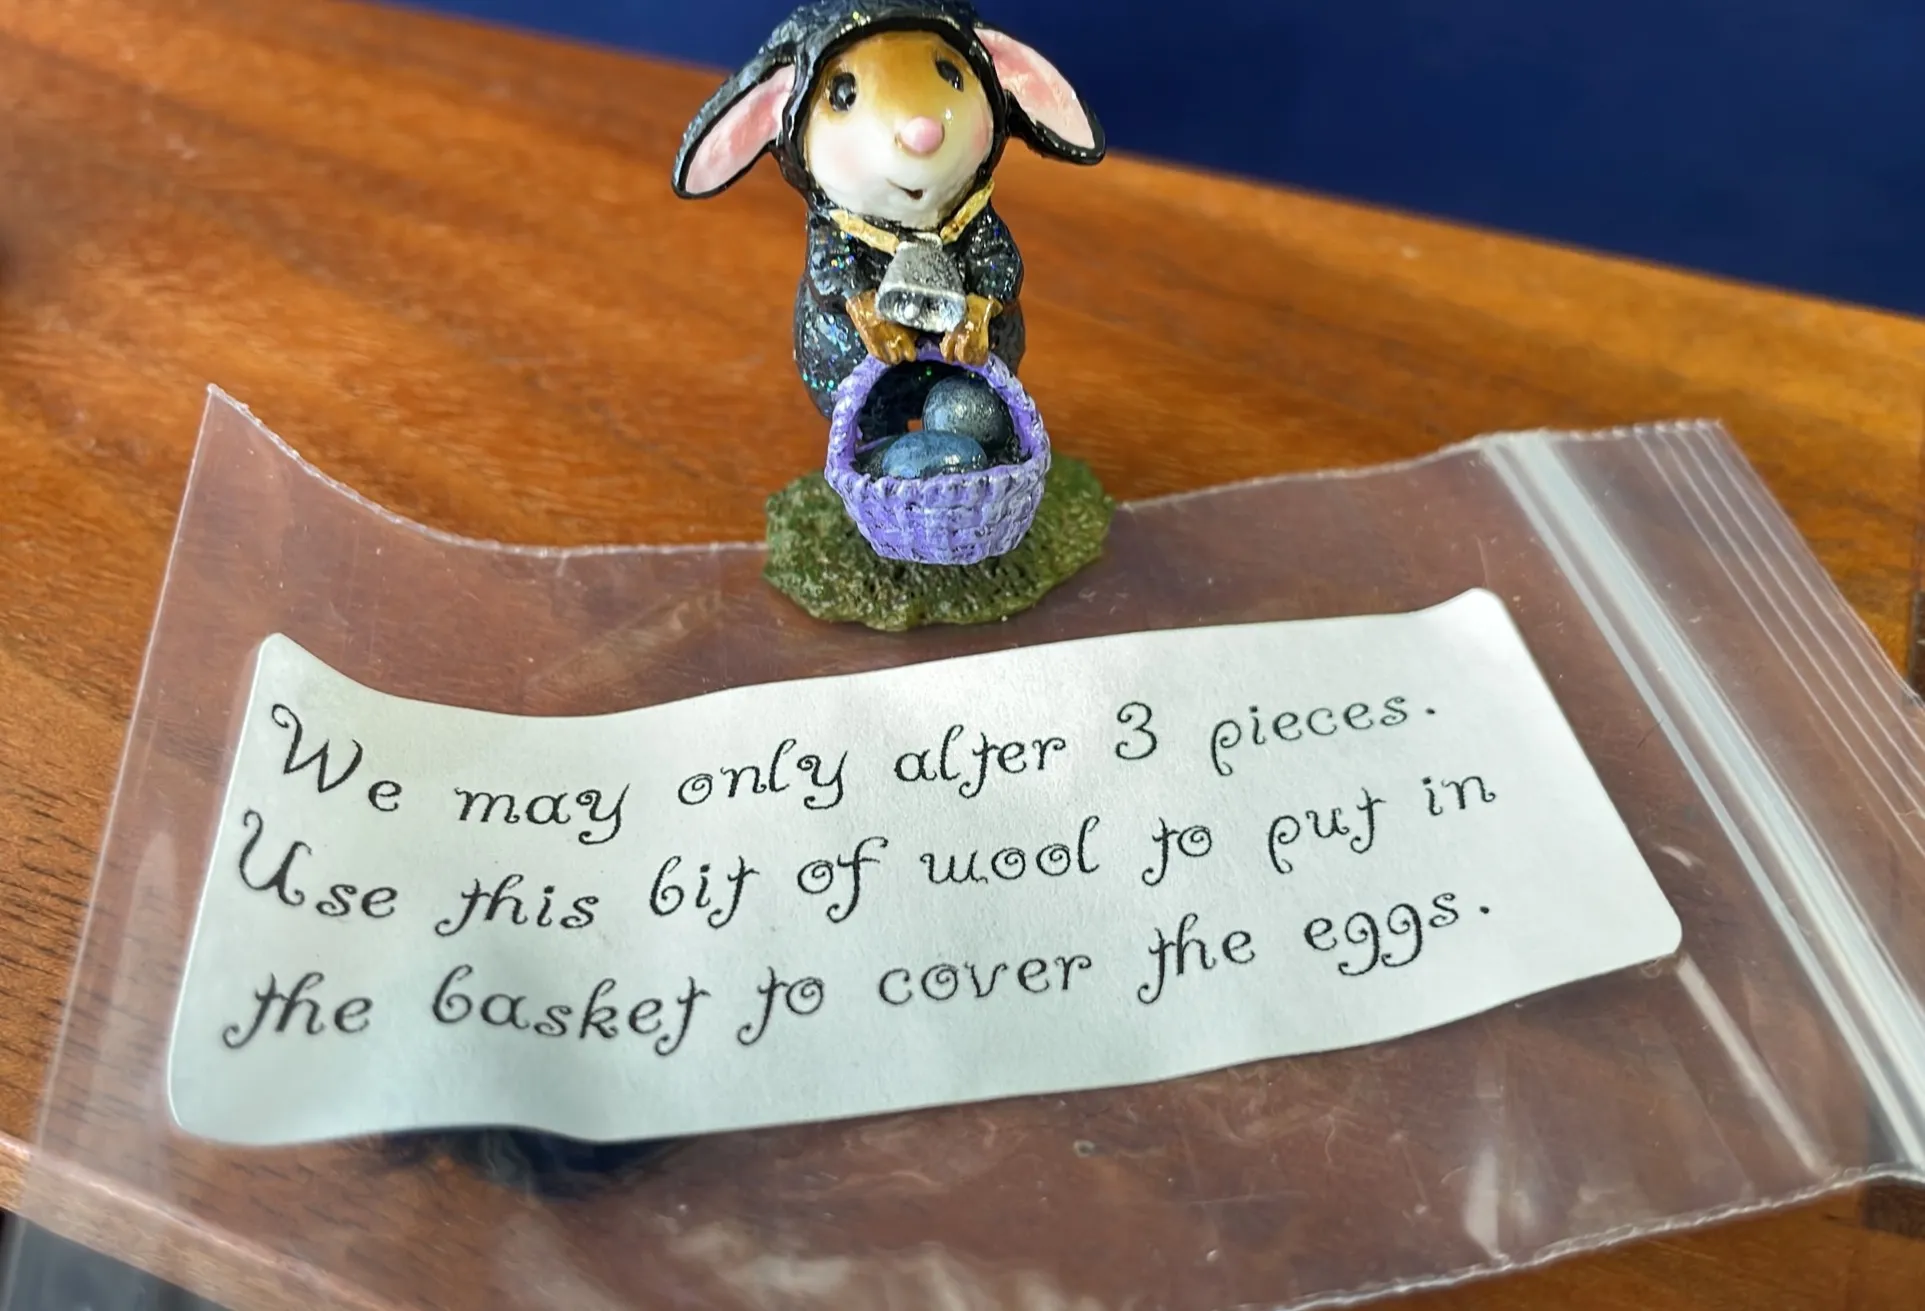 We may only alter 3 pieces.
Use this bit of wool to put in
the basket to cover the eggs.